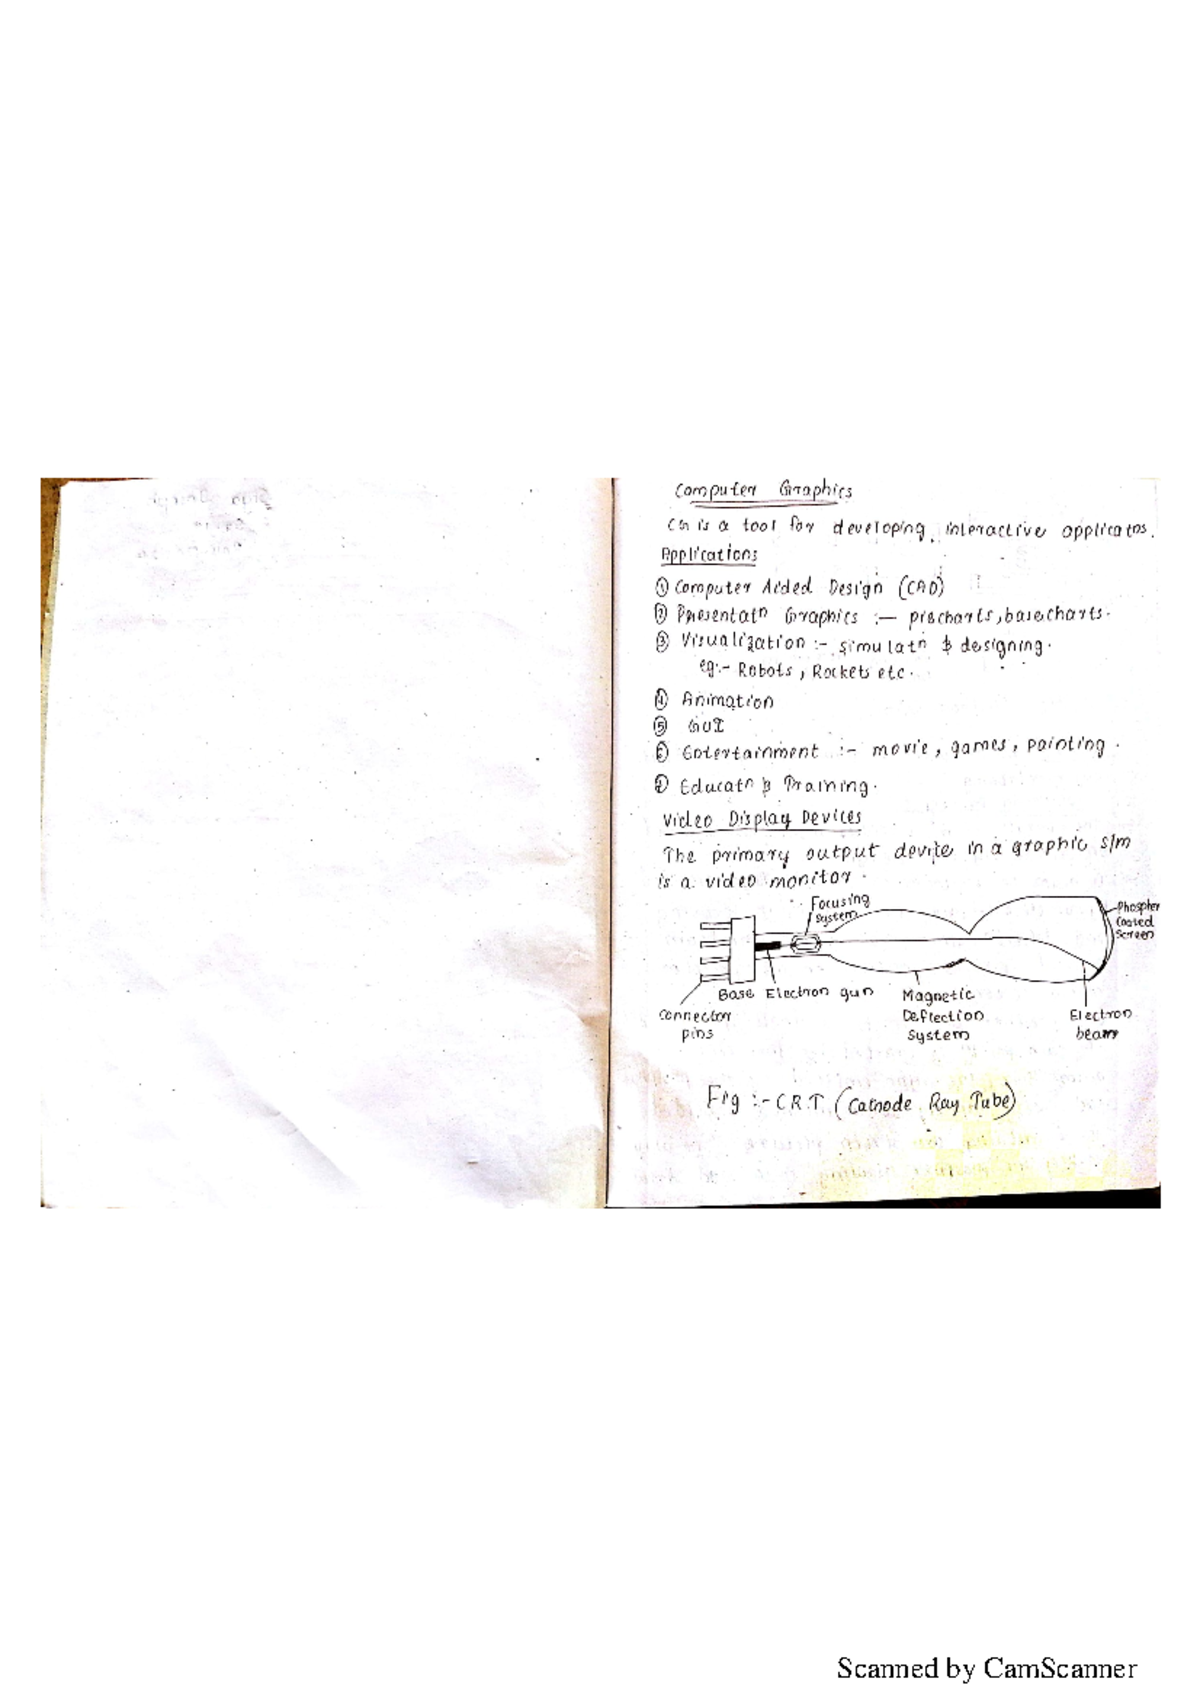 Computer Graphics
CG is a tool for developing interactive applicatns.
Applications
① Computer Aided Design (CAD)
② Presentatn Graphics :— piecharts, basecharts.
③ Visualization :- simulatn & designing.
eg:- Robots, Rockets etc.
④ Animation
⑤ GUI
⑥ Entertainment :- movie, games, painting.
⑦ Educatn & Training.
Video Display Devices
The primary output device in a graphic s/m
is a video monitor.
Focusing
System
Phospher
Coated
Screen
Base Electron gun
Connector
pins
Magnetic
Deflection
System
Electron
beam
Fig :- C.R.T. (Cathode Ray Tube)
Scanned by CamScanner